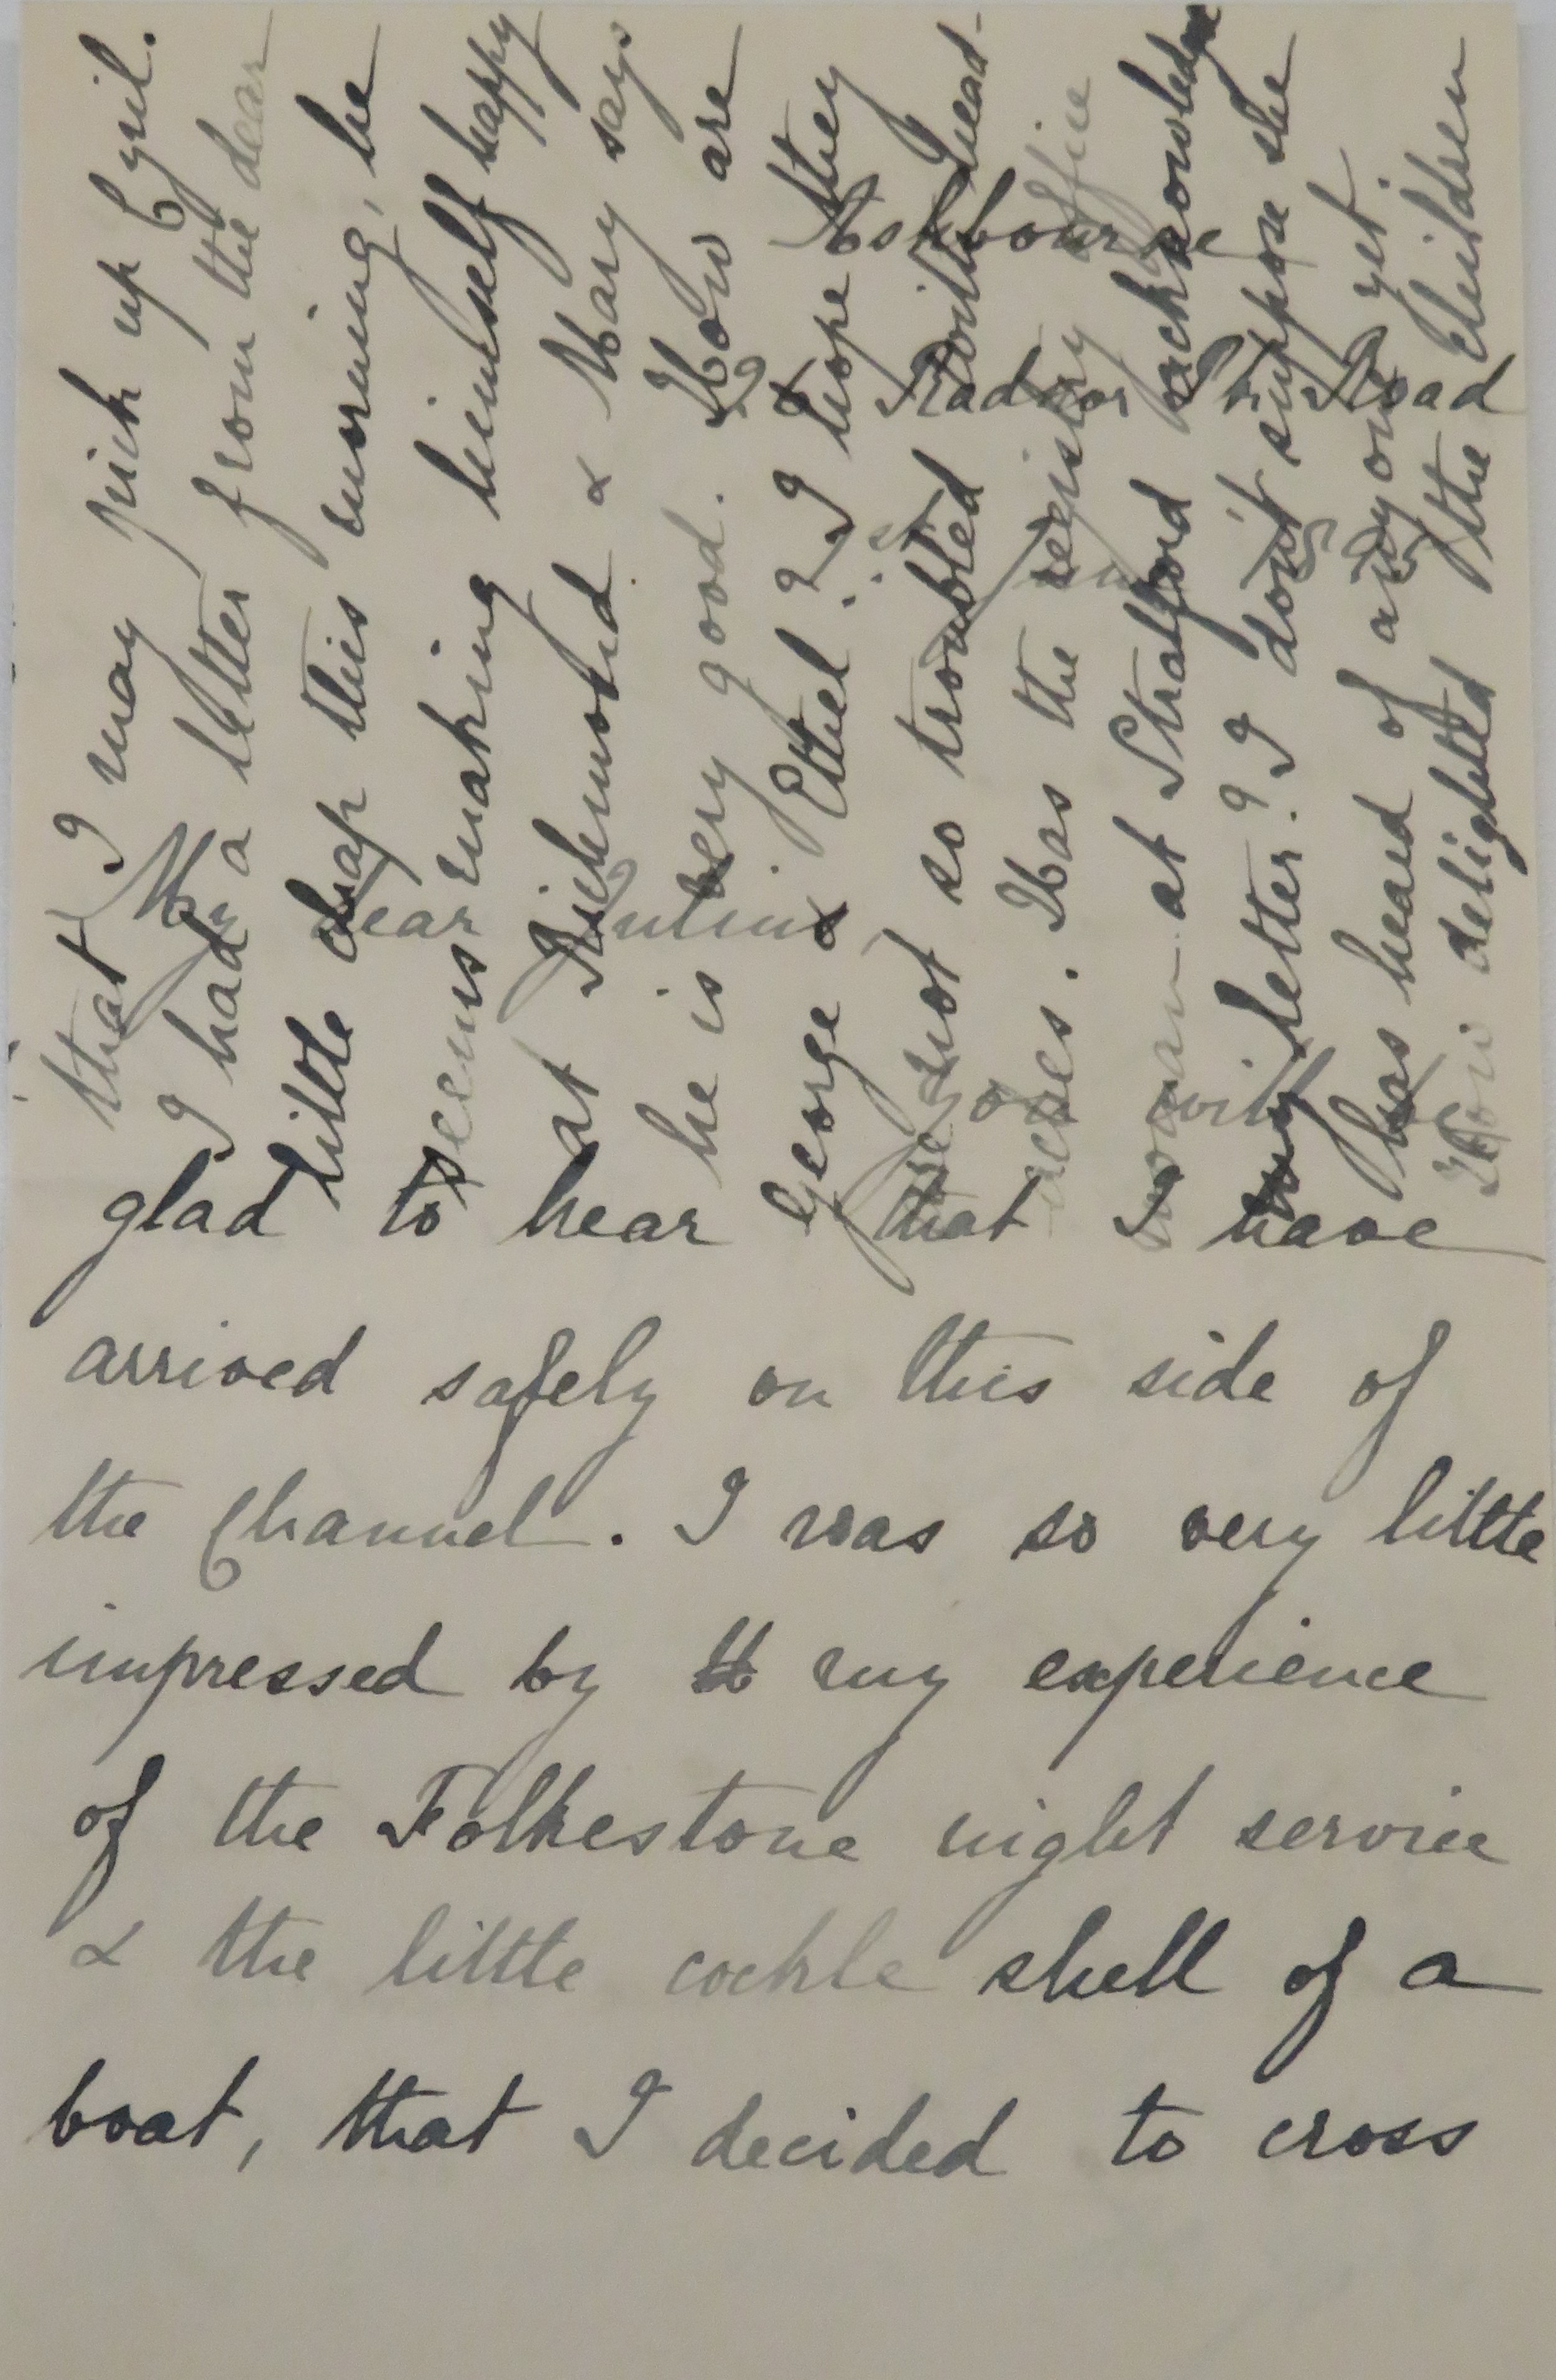 Ashbourne
Radnor Pk. Road
My dear
will
glad to hear that I have
arrived safely on this side of
the Channel. I was so very little
impressed by tt my experience
of the Folkestone night service
& the little cockle shell of a
boat, that I decided to cross
that I may pick up Cyril.
I had a letter from the dear
little chap this morning, he
seems making himself happy
at Richmond & Mary says
he is very good. How are
George & Ethel? I hope they
are not so troubled with head-
aches. Has the registry office
woman at Stratford acknowledged
my letter? I don't suppose she
has heard of anyone yet.
How delighted the children